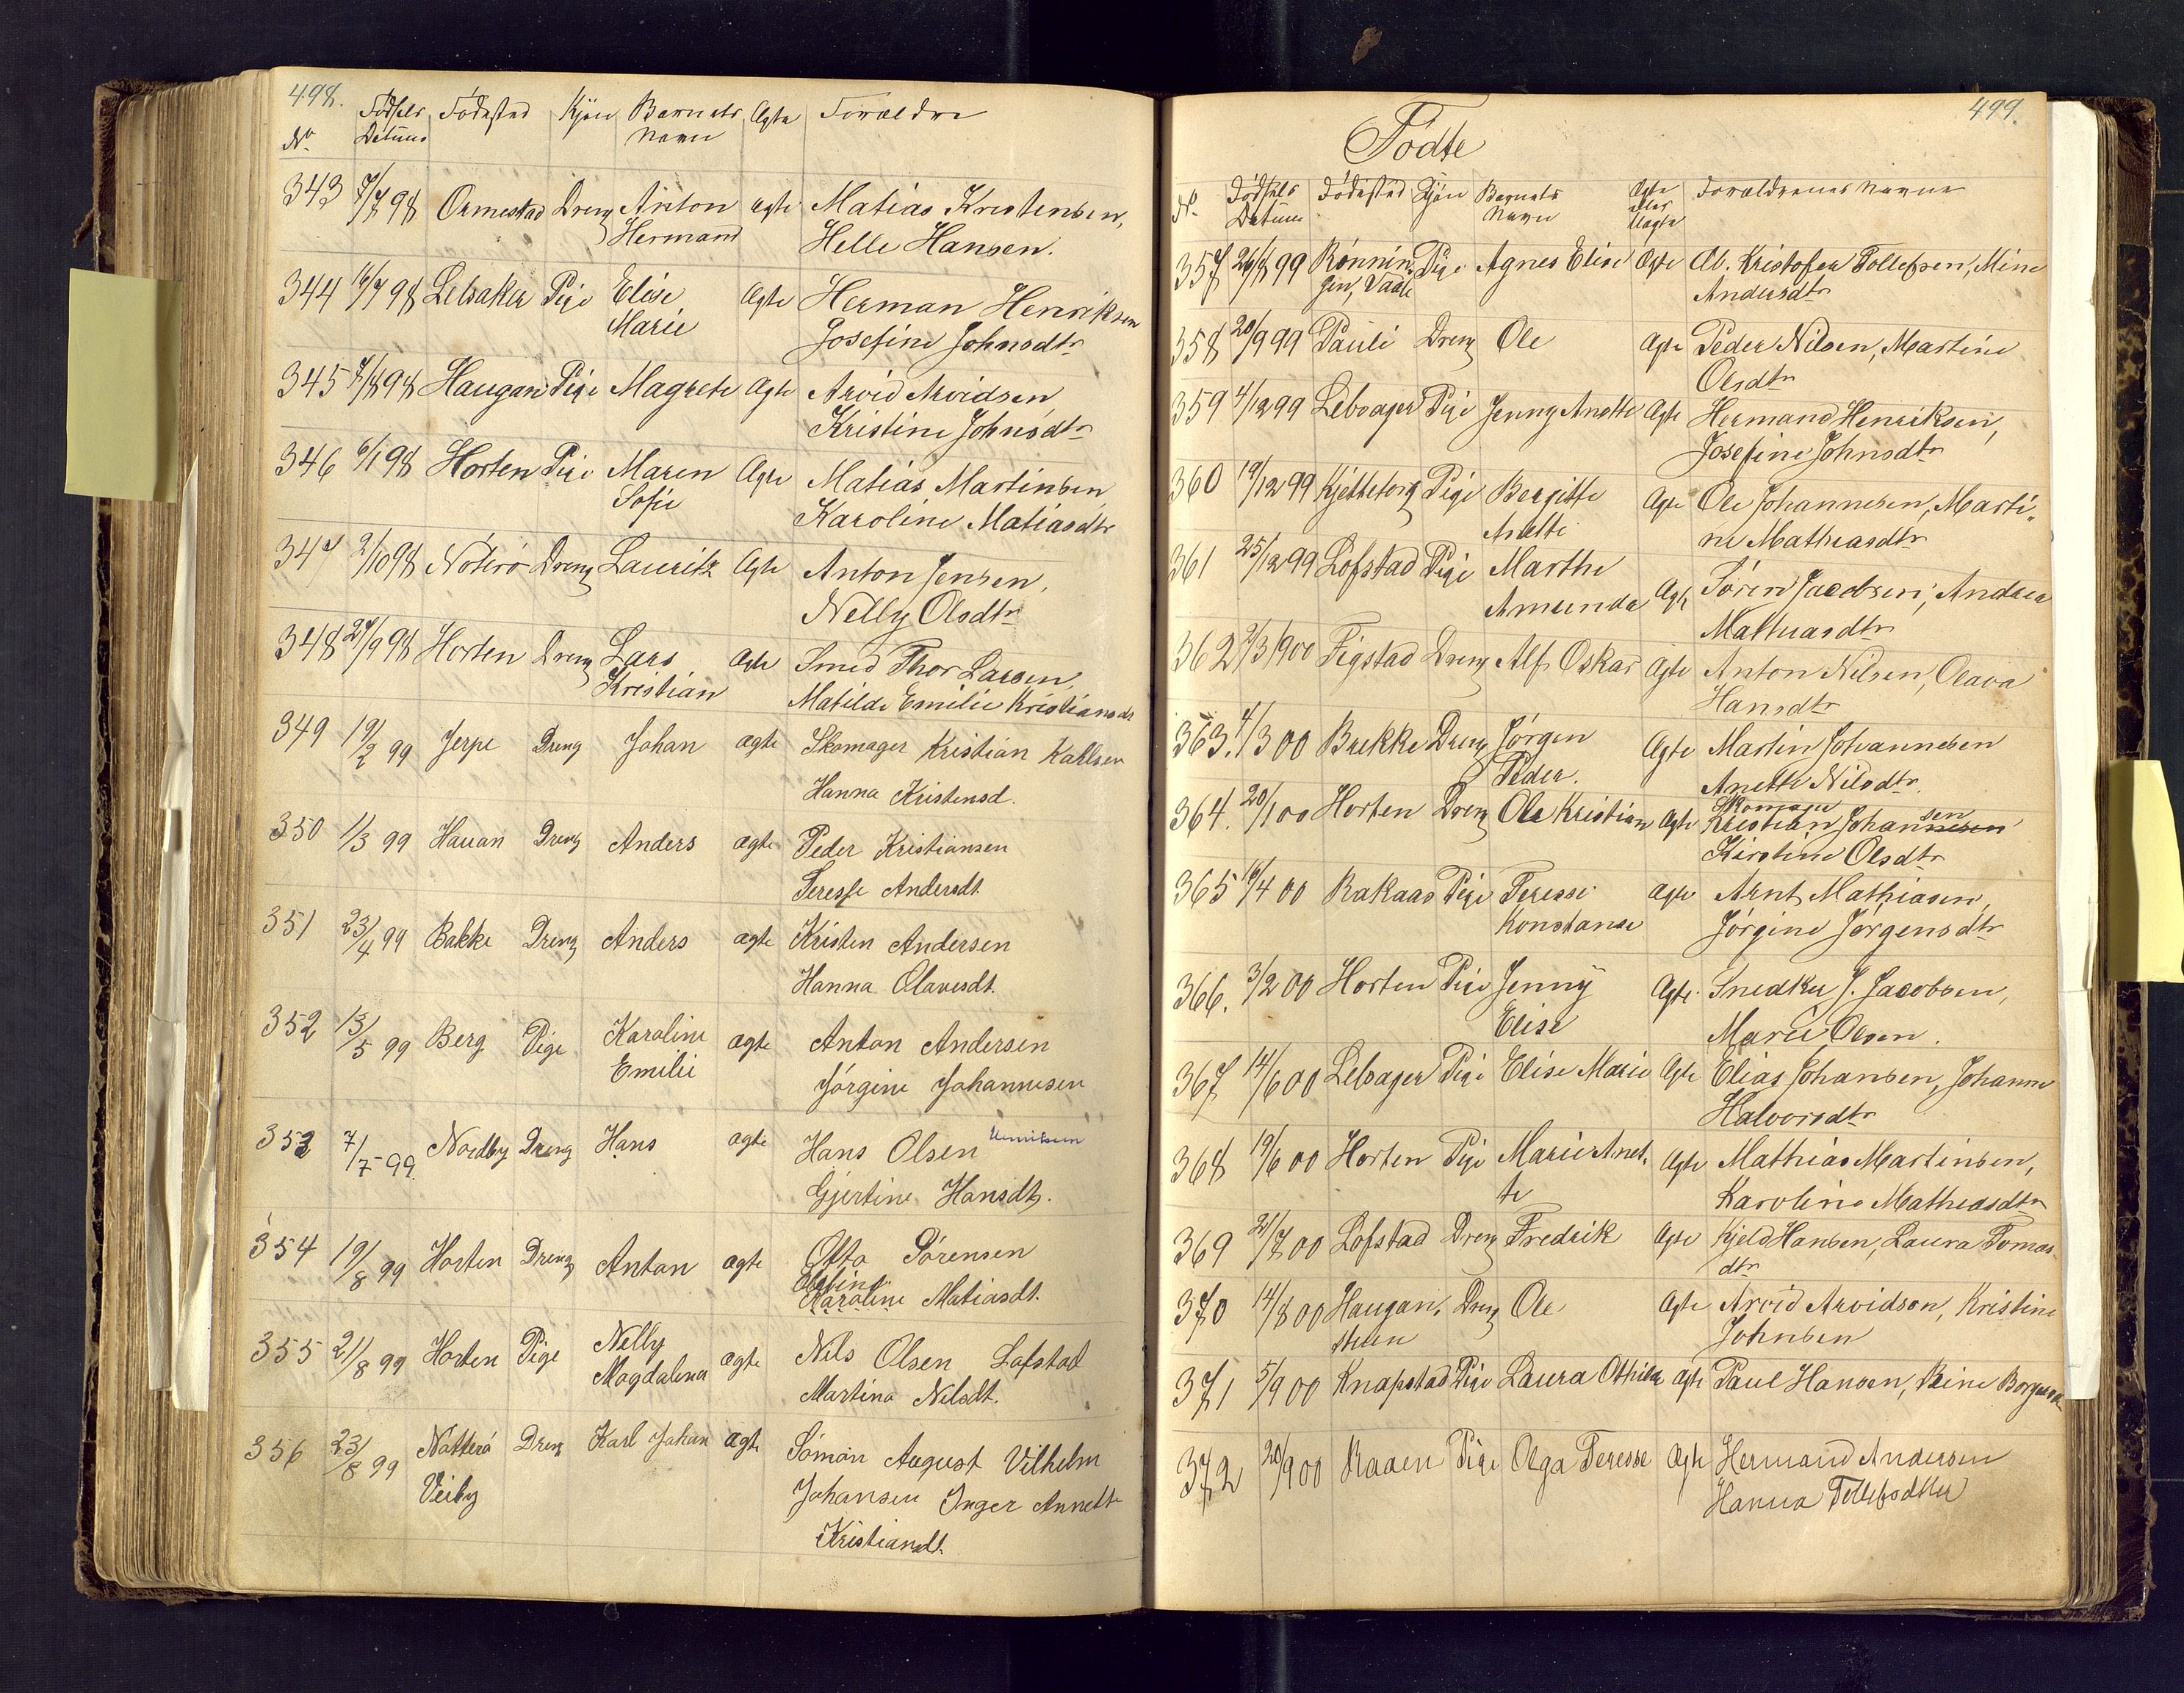 498.
No. Fødsels Datum Fødested Kjøn Barnets Navn Ægte Forældre
343 7/7 98 Ormestad Dreng Anton ægte Matias Kristensen,
Hermand Helle Hansen.
344 16/7 98 Lebsaker Pige Elise Ægte Herman Henriksen
Marie Josefine Johnsdtr
345 7/8 98 Haugan Pige Magrete Ægte Arvid Arvidsen
Kristine Johnsdtr
346 6/1 98 Horten Pige Maren Ægte Matias Martinsen
Sofie Karoline Matiasdtr
347 2/10 98 Nøterø Dreng Lauritz Ægte Anton Jensen,
Nelly Olsdtr
348 27/9 98 Horten Dreng Lars Ægte Smed Thor Larsen,
Kristian Matilde Emilie Kristiansdr
349 19/2 99 Jerpe Dreng Johan ægte Skomager Kristian Karlsen
Hanna Kristensd.
350 1/3 99 Hauan Dreng Anders ægte Peder Kristiansen
Teresse Andersdt.
351 23/4 99 Bakke Dreng Anders ægte Kristen Andersen
Hanna Olavesdt.
352 13/5 99 Berg Pige Karoline ægte Anton Andersen
Emilie Jørgine Johannesen
353 7/7-99. Nordby Dreng Hans ægte Hans Olsen
Gjertine Hansdt.
354 19/8 99 Horten Dreng Anton ægte Otto Sørensen
Karoline Matiasdt.
355 21/8 99 Horten Pige Nelly ægte Nils Olsen Lofstad
Magdalena Martina Nilsdt.
356 23/8 99 Nøtterø Dreng Karl Johan ægte Simon August Vilhelm
Veiby Johansen Inger Annette
Kristiansdt.
499.
Fødte
No. Fødsels Datum Fødested Kjøn Barnets Navn Ægte eller Uægte Forældrenes Navne
357 26/7 99 Rønnin- Pige Agnes Elise Ægte Al. Kristofer Tollefsen, Mine
gen, Vaale Andersdtr
358 20/9 99 Pauli Dreng Ole Ægte Peder Nilsen, Martine
Olsdtr
359 4/12 99 Lebsager Pige Jenny Anette Ægte Hermand Henriksen,
Josefine Johnsdtr
360 19/12 99 Pige Bergitte Ægte Ole Johannesen, Marti-
Anette ne Mathiasdtr
361 25/12 99 Lofstad Pige Marthe
Amunda Ægte Søren Jacobsen, Andrea
Mathiasdtr
362 2/3 1900 Figstad Dreng Alf Oskar Ægte Anton Nilsen, Olava
Hansdtr
363. 4/3 00 Brekke Dreng Jørgen Ægte Martin Johannesen
Peder. Anette Nilsdtr.
364. 20/1 00 Horten Dreng Ole Kristian Ægte Kristian Johannesen sen
Kirstine Olsdtr
365 16/4 00 Rakaas Pige Teresse ægte Arnt Mathiasen,
Konstanse Jørgine Jørgensdtr
366. 3/2 00 Horten Pige Jenny Ægte. Snedker J. Jacobsen,
Elise Marie Olsen.
367 14/6 00 Lebsager Pige Elise Marie Ægte Elias Johansen, Johanne
Halvorsdtr
368 19/6 00 Horten Pige Marie Anet- Ægte Mathias Martinsen,
te Karoline Mathiasdtr
369 21/7 00 Lofstad Dreng Fredrik Ægte Kjeld Hansen, Laura Tomas-
dtr
370 14/8 00 Haugan, Dreng Ole Ægte Arvid Arvidson, Kristine
Johnsen
371 5/9 00 Knapstad Pige Laura Othilie ægte Paul Hansen,
372 20/9 00 Raaen Pige Olga Teresse Ægte Hermand Andersen
Hanna